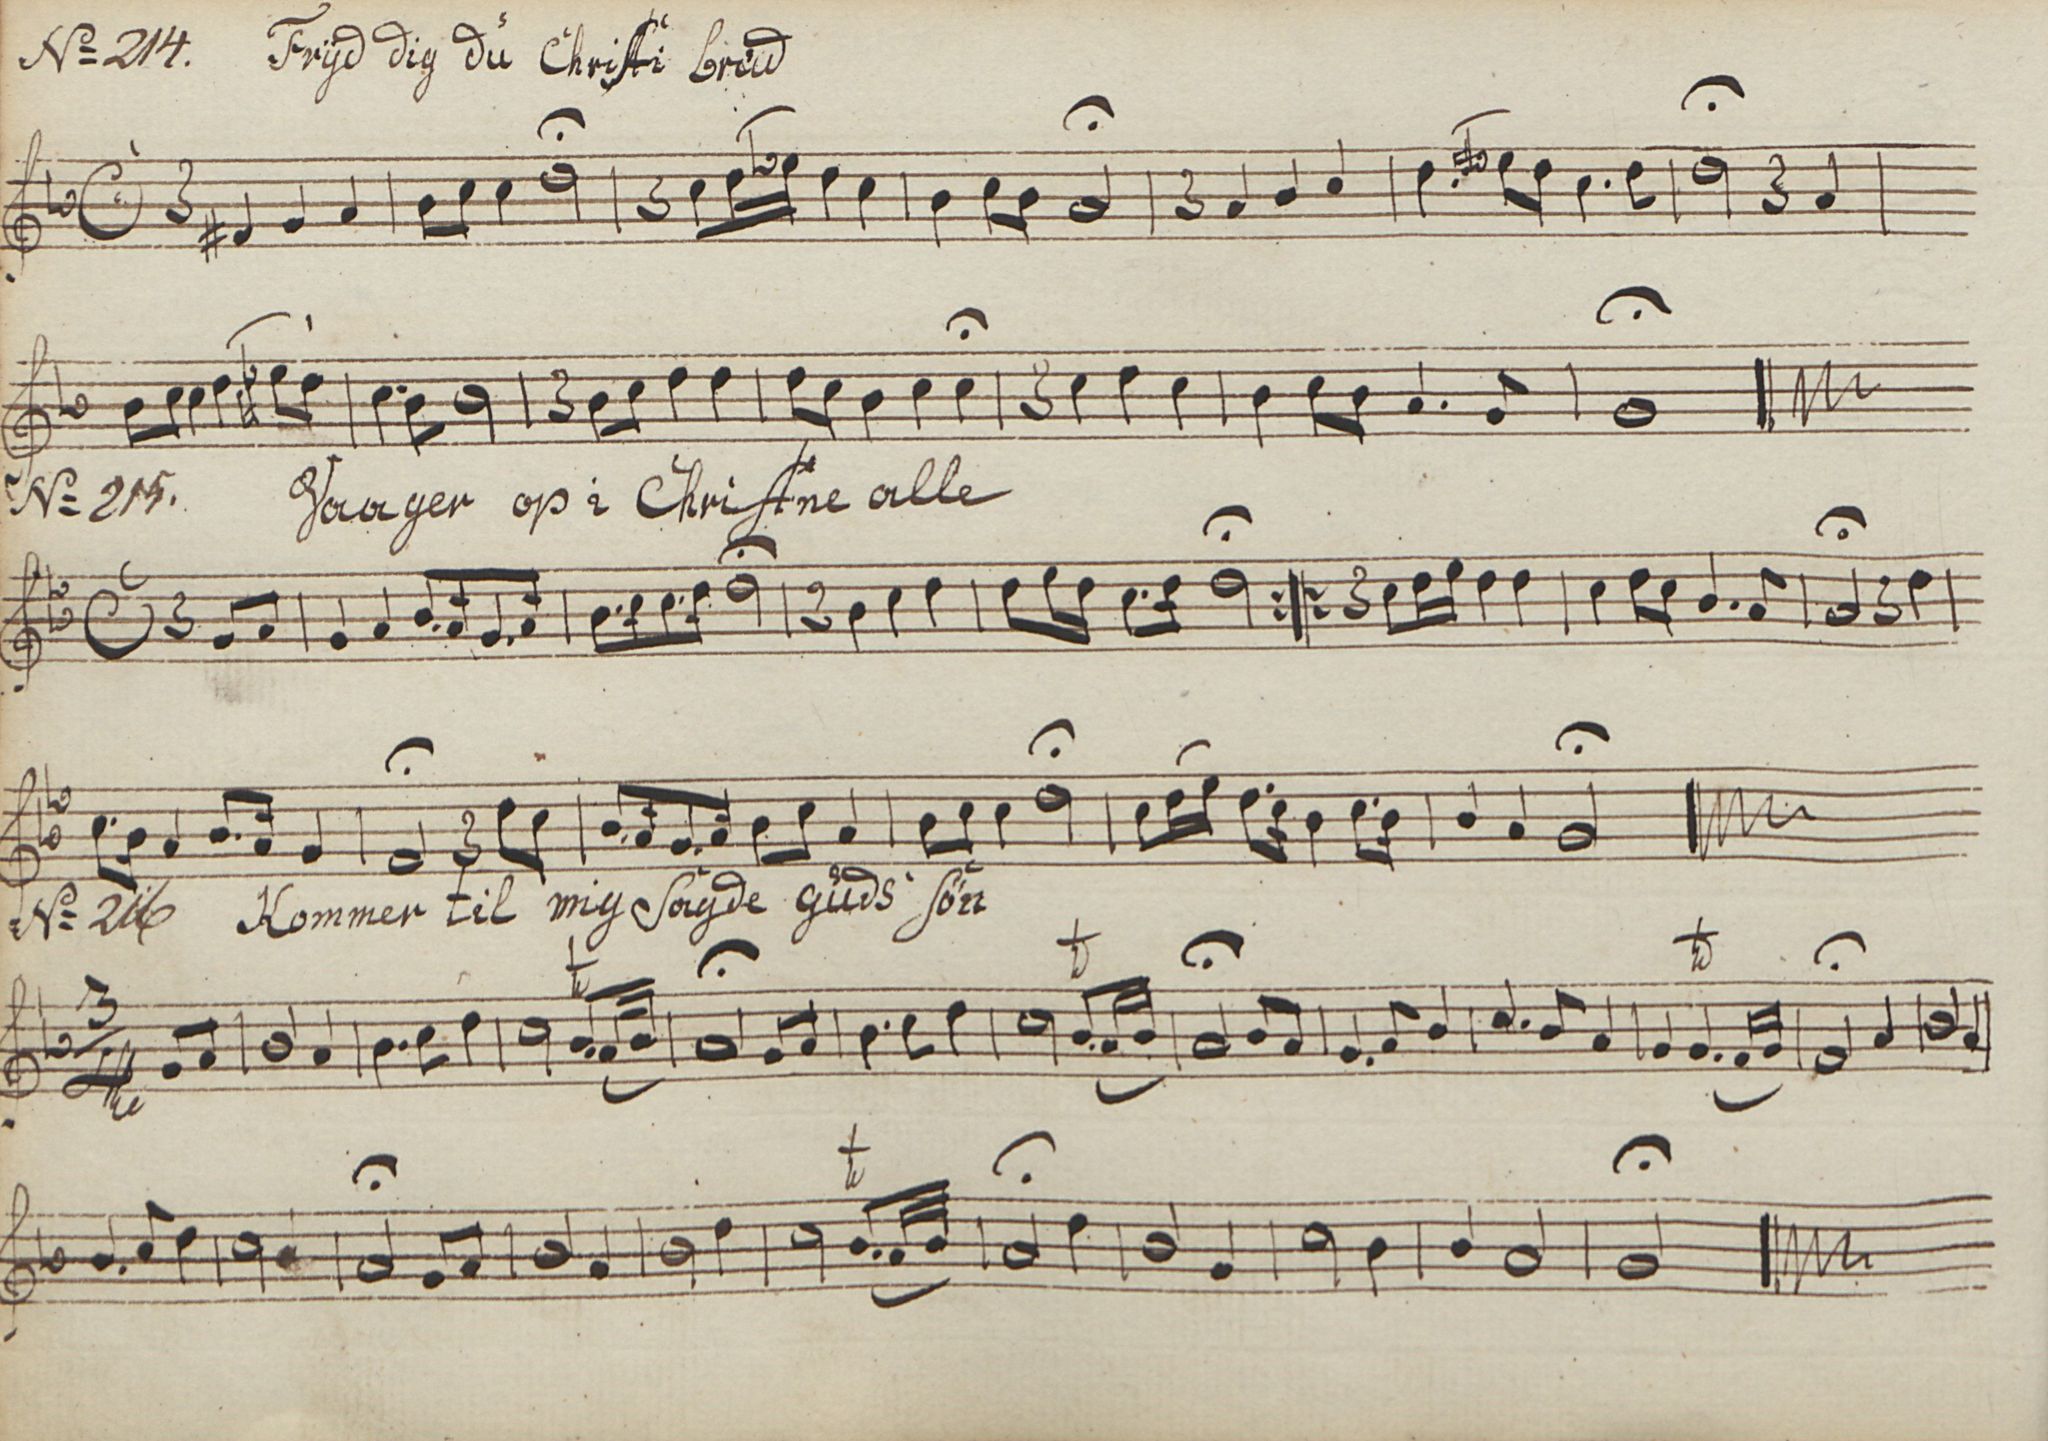 No 214. Frÿd dig dů Christi brŭd
No 215. Vaager op i Christne alle
No 216 Kommer til mig sagde gŭds sön
3